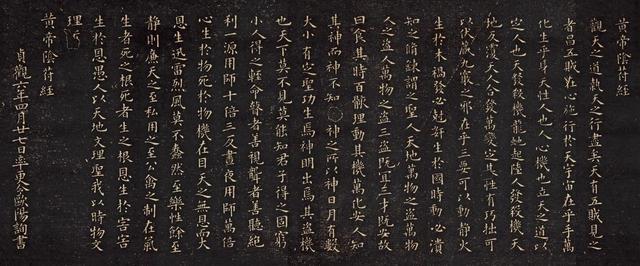 黃帝陰符經
觀天之道執天之行盡矣天有五賊見之
者昌五賊在心施行於天宇宙在乎手萬
化生乎身天性人也人心機也立天之道以
定人也天發殺機龍蛇起陸人發殺機天
地反覆天人合發萬變定基性有巧拙可
以伏藏九竅之邪在乎三要可以動靜火
生於木禍發必剋姧生於國時動必潰
知之脩鍊謂之聖人天地萬物之盜萬物
人之盜人萬物之盜三盜既宜三才既安故
曰食其時百骸理動其機萬化安人知
其神而神不知神之所以神日月有數
大小有定聖功生焉神明出焉其盜機
也天下莫不見莫能知君子得之固窮
小人得之輕命瞽者善視聾者善聽絕
利一源用師十倍三反晝夜用師萬倍
心生於物死於物機在目天之無恩而大
恩生迅雷烈風莫不蠢然至樂性餘至
靜則廉天之至私用之至公禽之制在氣
生者死之根死者生之根恩生於害害
生於恩愚人以天地文理聖我以時物文
理哲
黃帝陰符經
貞觀六年四月廿七日率更令歐陽詢書